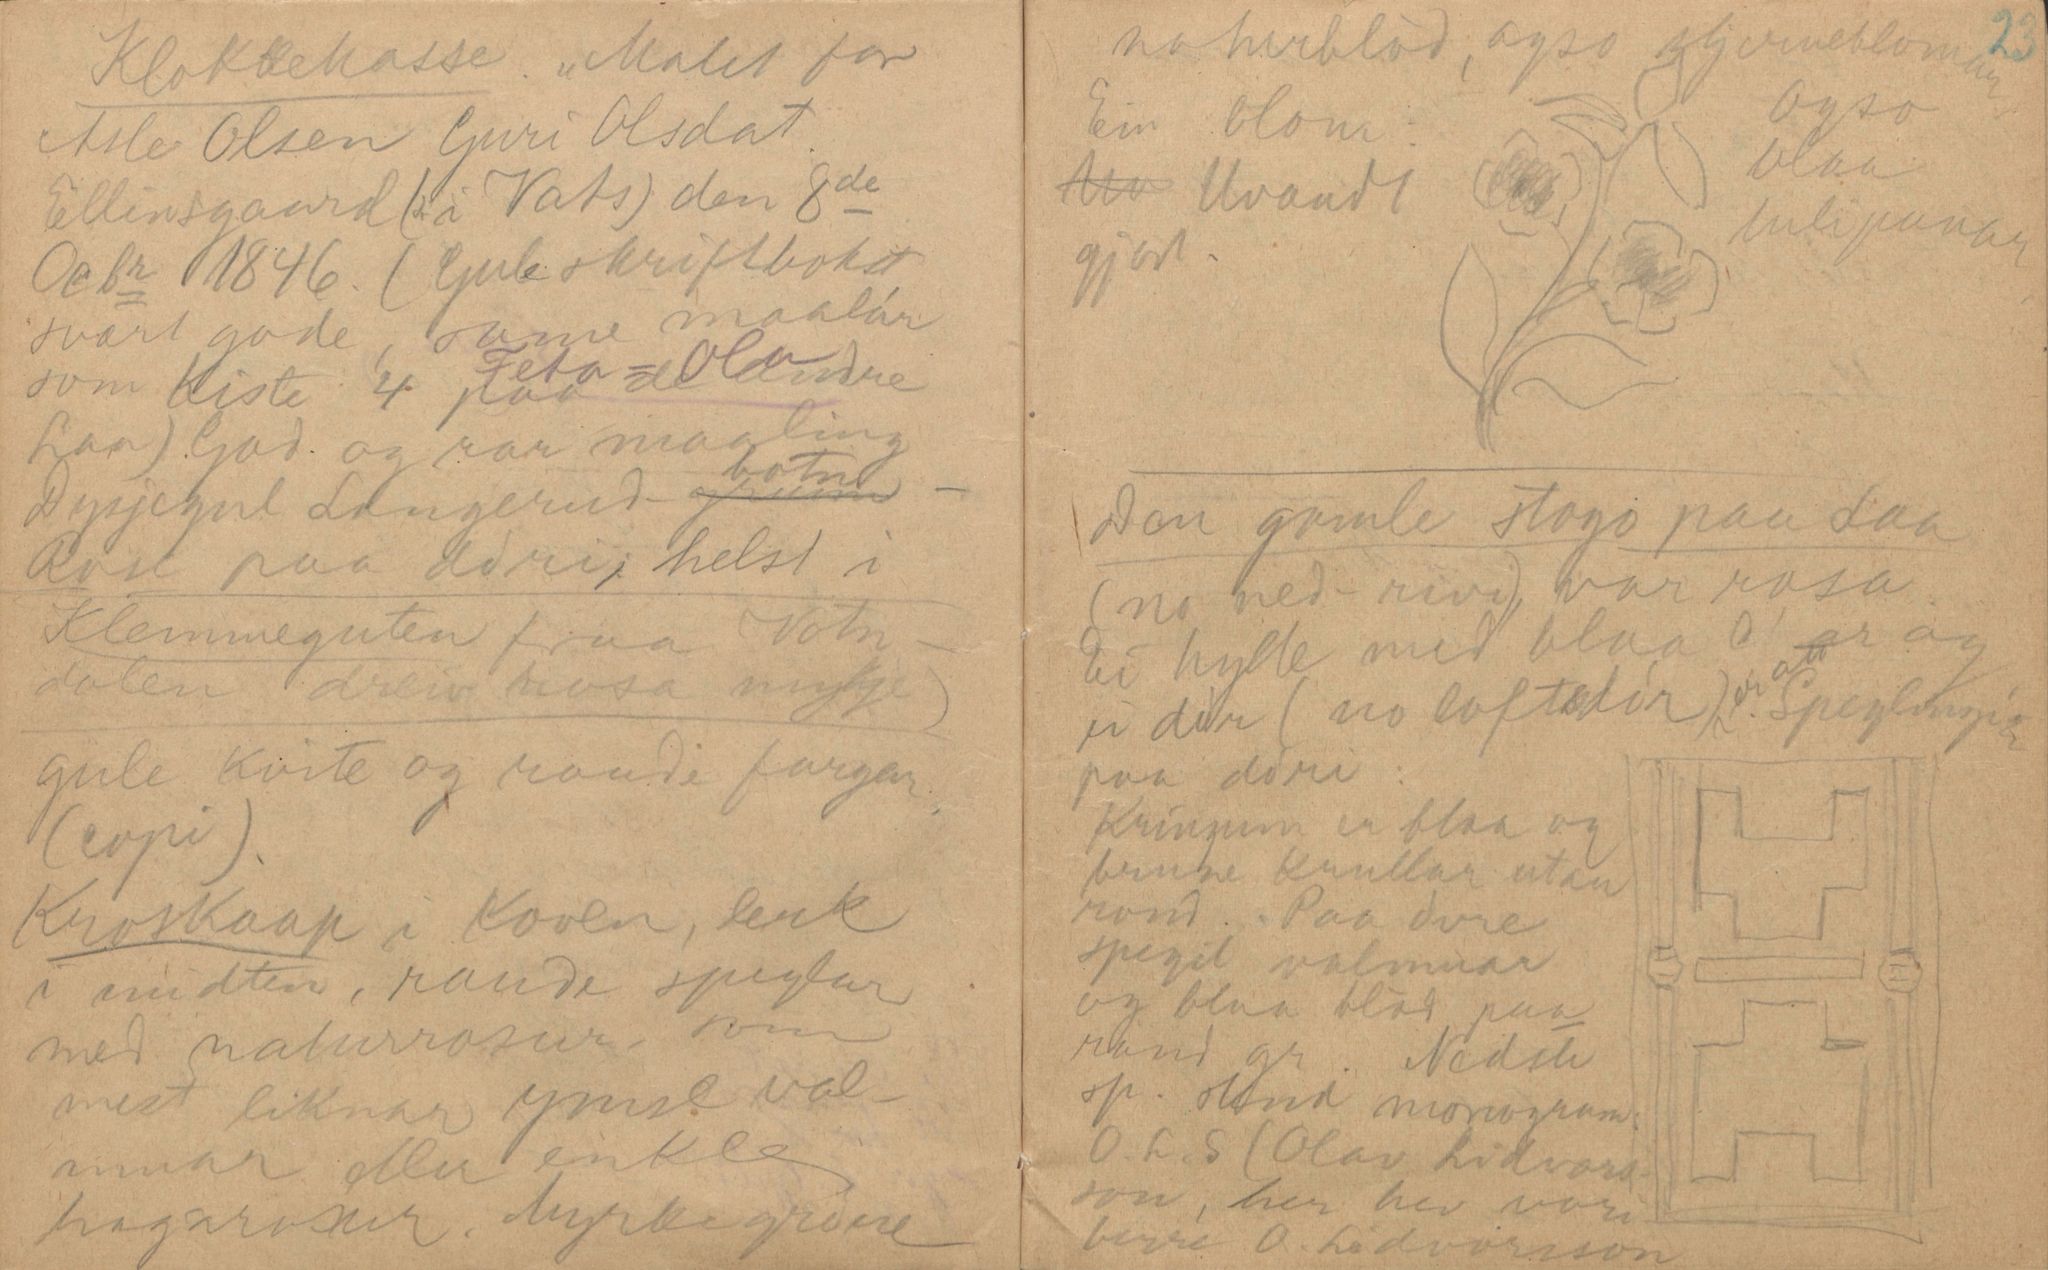 Klokkekasse. "Malet for
Asle Olsen Guri Olsdat.
Ellinsgaard (i Vats) den 8de
Octbr 1846. (Gule skriftbokst
svart gode, same maalar
som Kiste 4 paa de andre
Feta=Ola
Laa) God og rar maaling
Dysjegul Langerud- botn -
Rosu paa dóri, helst i
Klemmeguten fraa Votn-
dalen dreiv rosa mykje)
gule kvite og raude fargar.
(copi).
Kroskaap i Koven, leuk
i midten, raude speglar
med naturrosur, som
mest liknar ymse val-
muar eller enkle
hagarosur. Myrkegröne
23
naturblöd, ogso stjerneblomar
Ein blom: Ogso
blaa
Uvandt
tulipanar
gjort.
Den gamle stogo paa Laa
(no ned-rivi), var rosa.
Ei hylle med blaa og
ei dör (no loftsdör) er att. Speglingjar
paa dóri:
Kringum er blaa og
brune krullar utan
rand. Paa övre
spegil valmuar
og blaa blöd paa
rand gr. Nedste
sp. stend monogram:
O. L. S (Olav Lidvars-
son, her hev vori
berre O. Lidvarsson